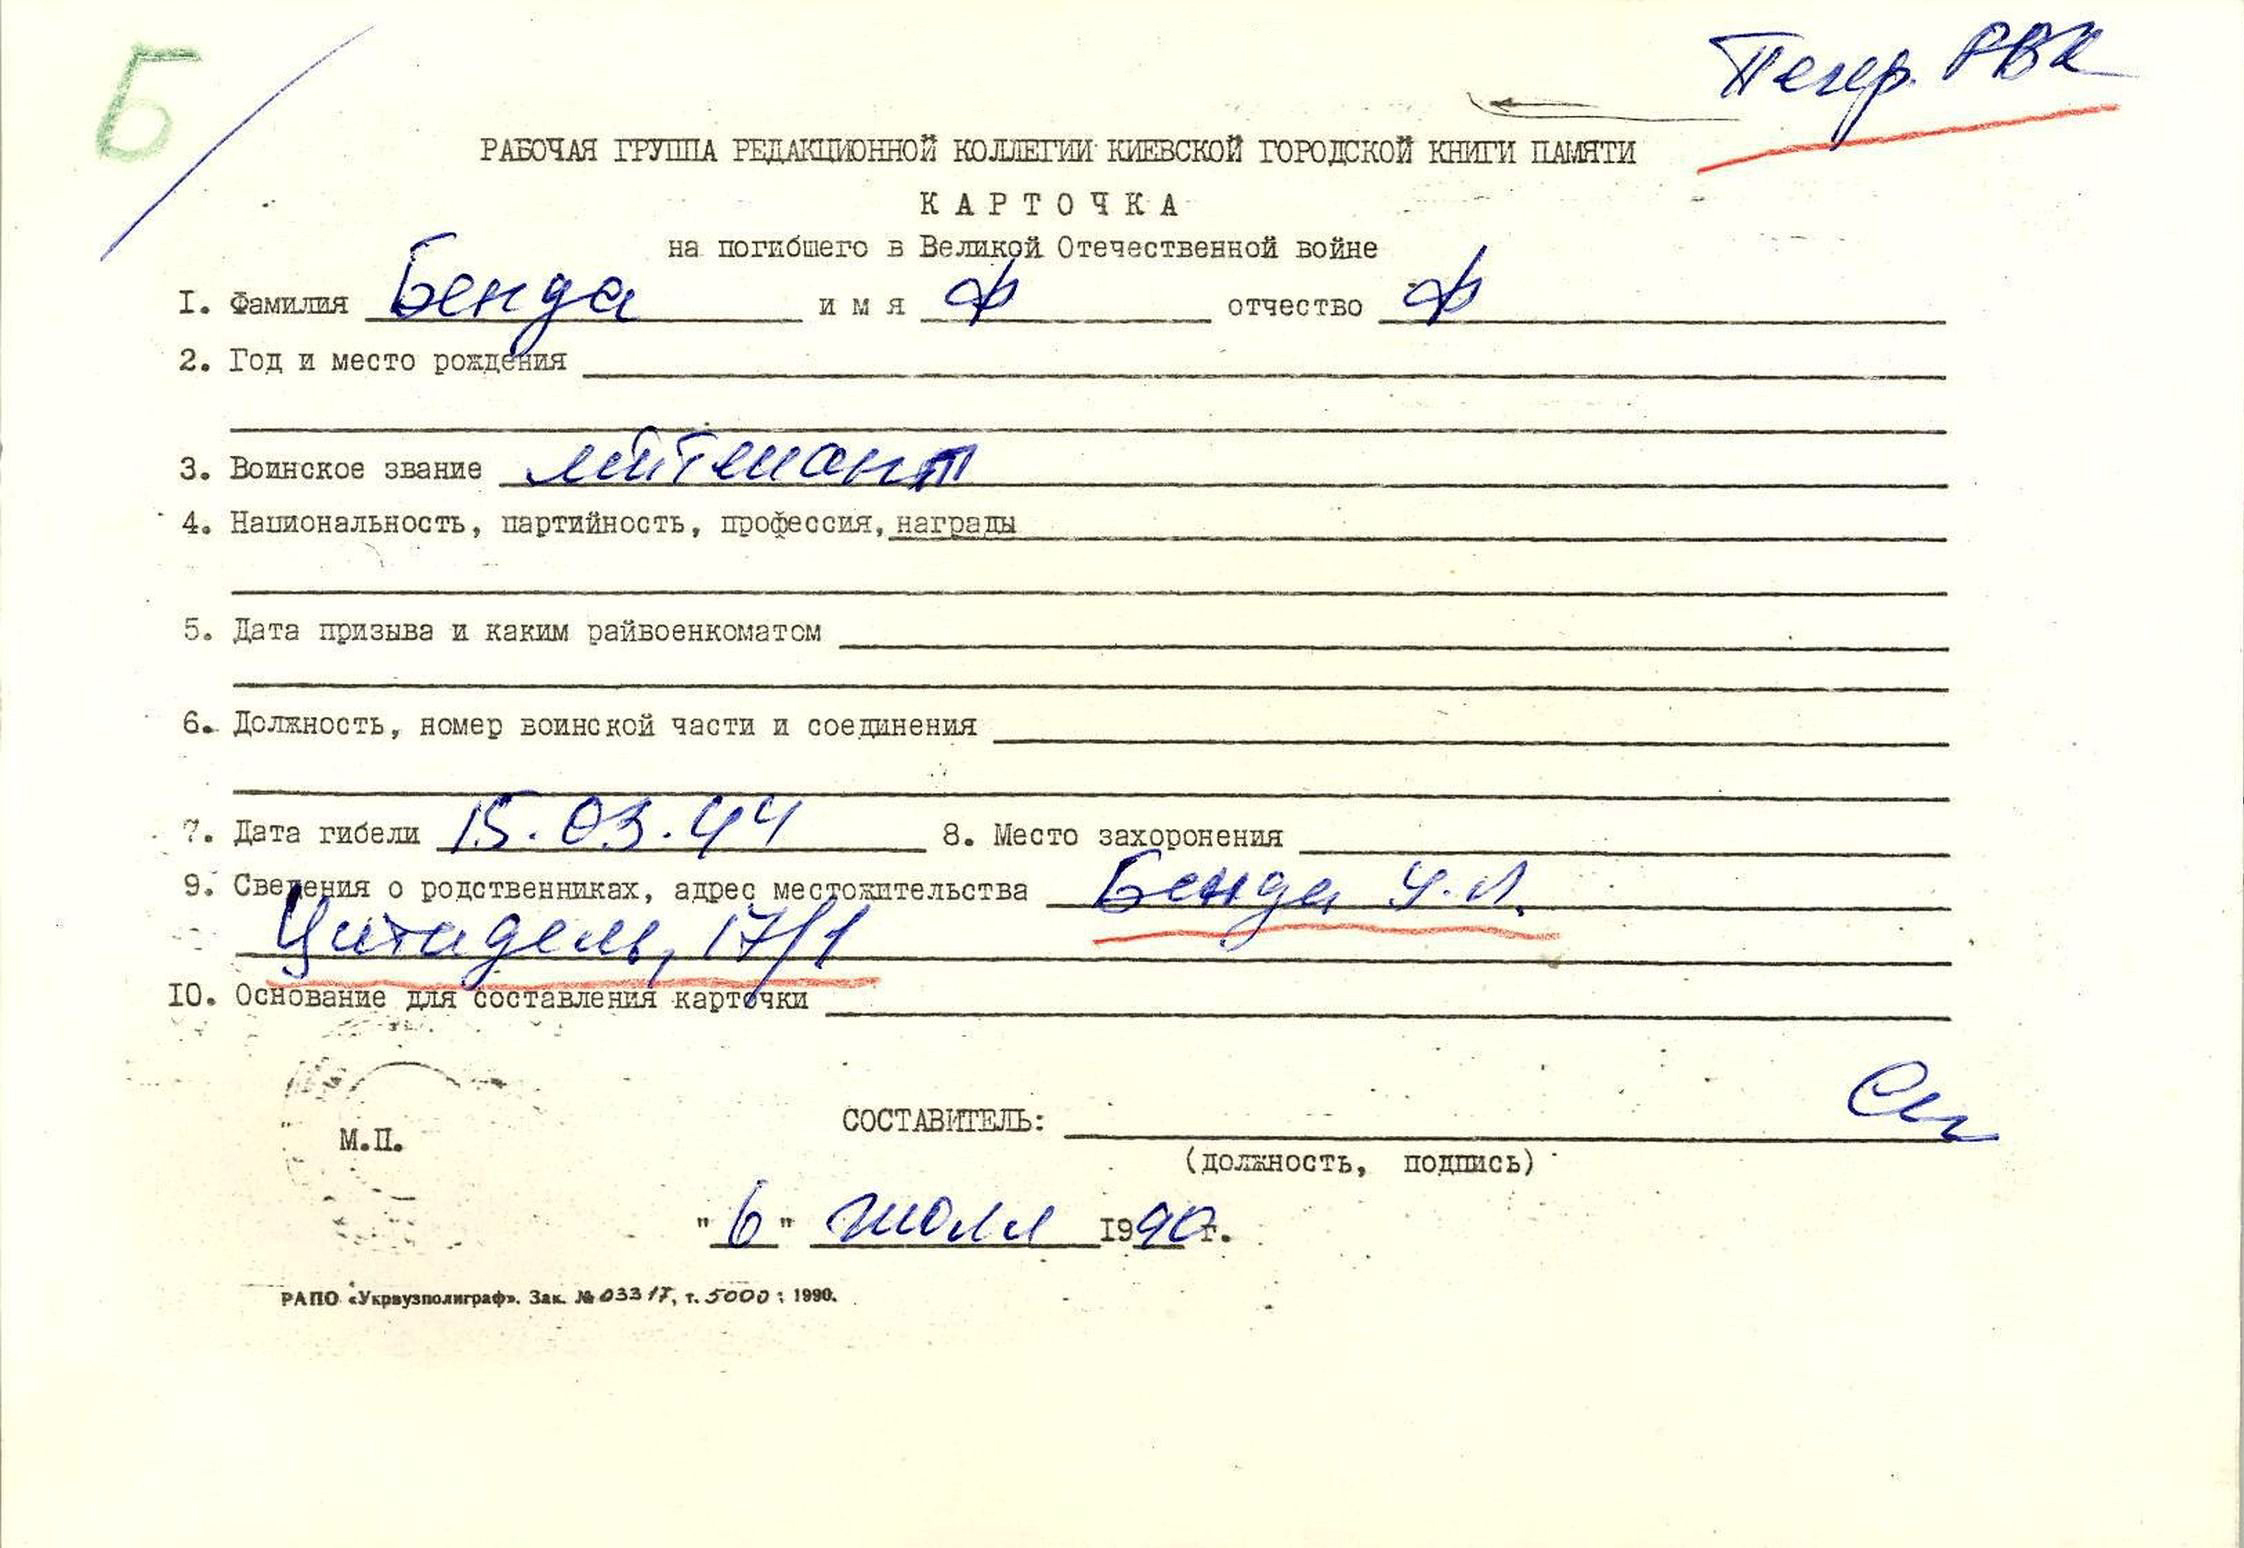 Б
Печер. РВК
РАБОЧАЯ ГРУППА РЕДАКЦИОННОЙ КОЛЛЕГИИ КИЕВСКОЙ ГОРОДСКОЙ КНИГИ ПАМЯТИ
КАРТОЧКА
на погибшего в Великой Отечественной войне
I. Фамилия Бенда имя Ф отчество Ф
2. Год и место рождения
3. Воинское звание лейтенант
4. Национальность, партийность, профессия, награды
5. Дата призыва и каким райвоенкоматом
6. Должность, номер воинской части и соединения
7. Дата гибели 15.03.44 8. Место захоронения
9. Сведения о родственниках, адрес местожительства Бенда
Цитадель, 17/1
10. Основание для составления карточки
М.П.
СОСТАВИТЕЛЬ:
(должность, подпись)
"6" июля 1990г.
РАПО «Укрвузполиграф». Зак. № 03317, т. 5000 : 1990.